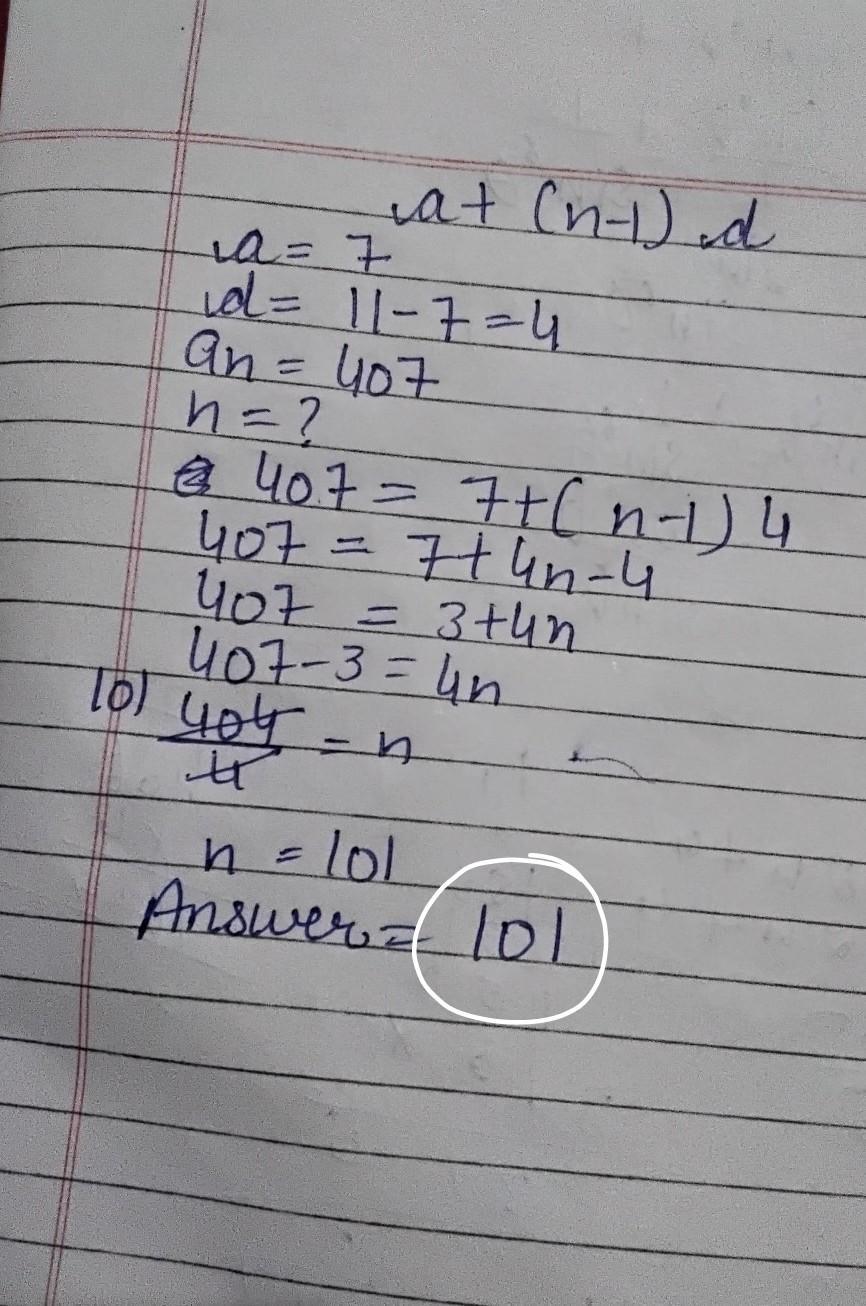 a + (n-1) d
a = 7
d = 11-7 = 4
an = 407
n = ?
407 = 7+(n-1) 4
407 = 7+4n-4
407 = 3+4n
407-3 = 4n
101 404/4 = n
n = 101
Answer = 101